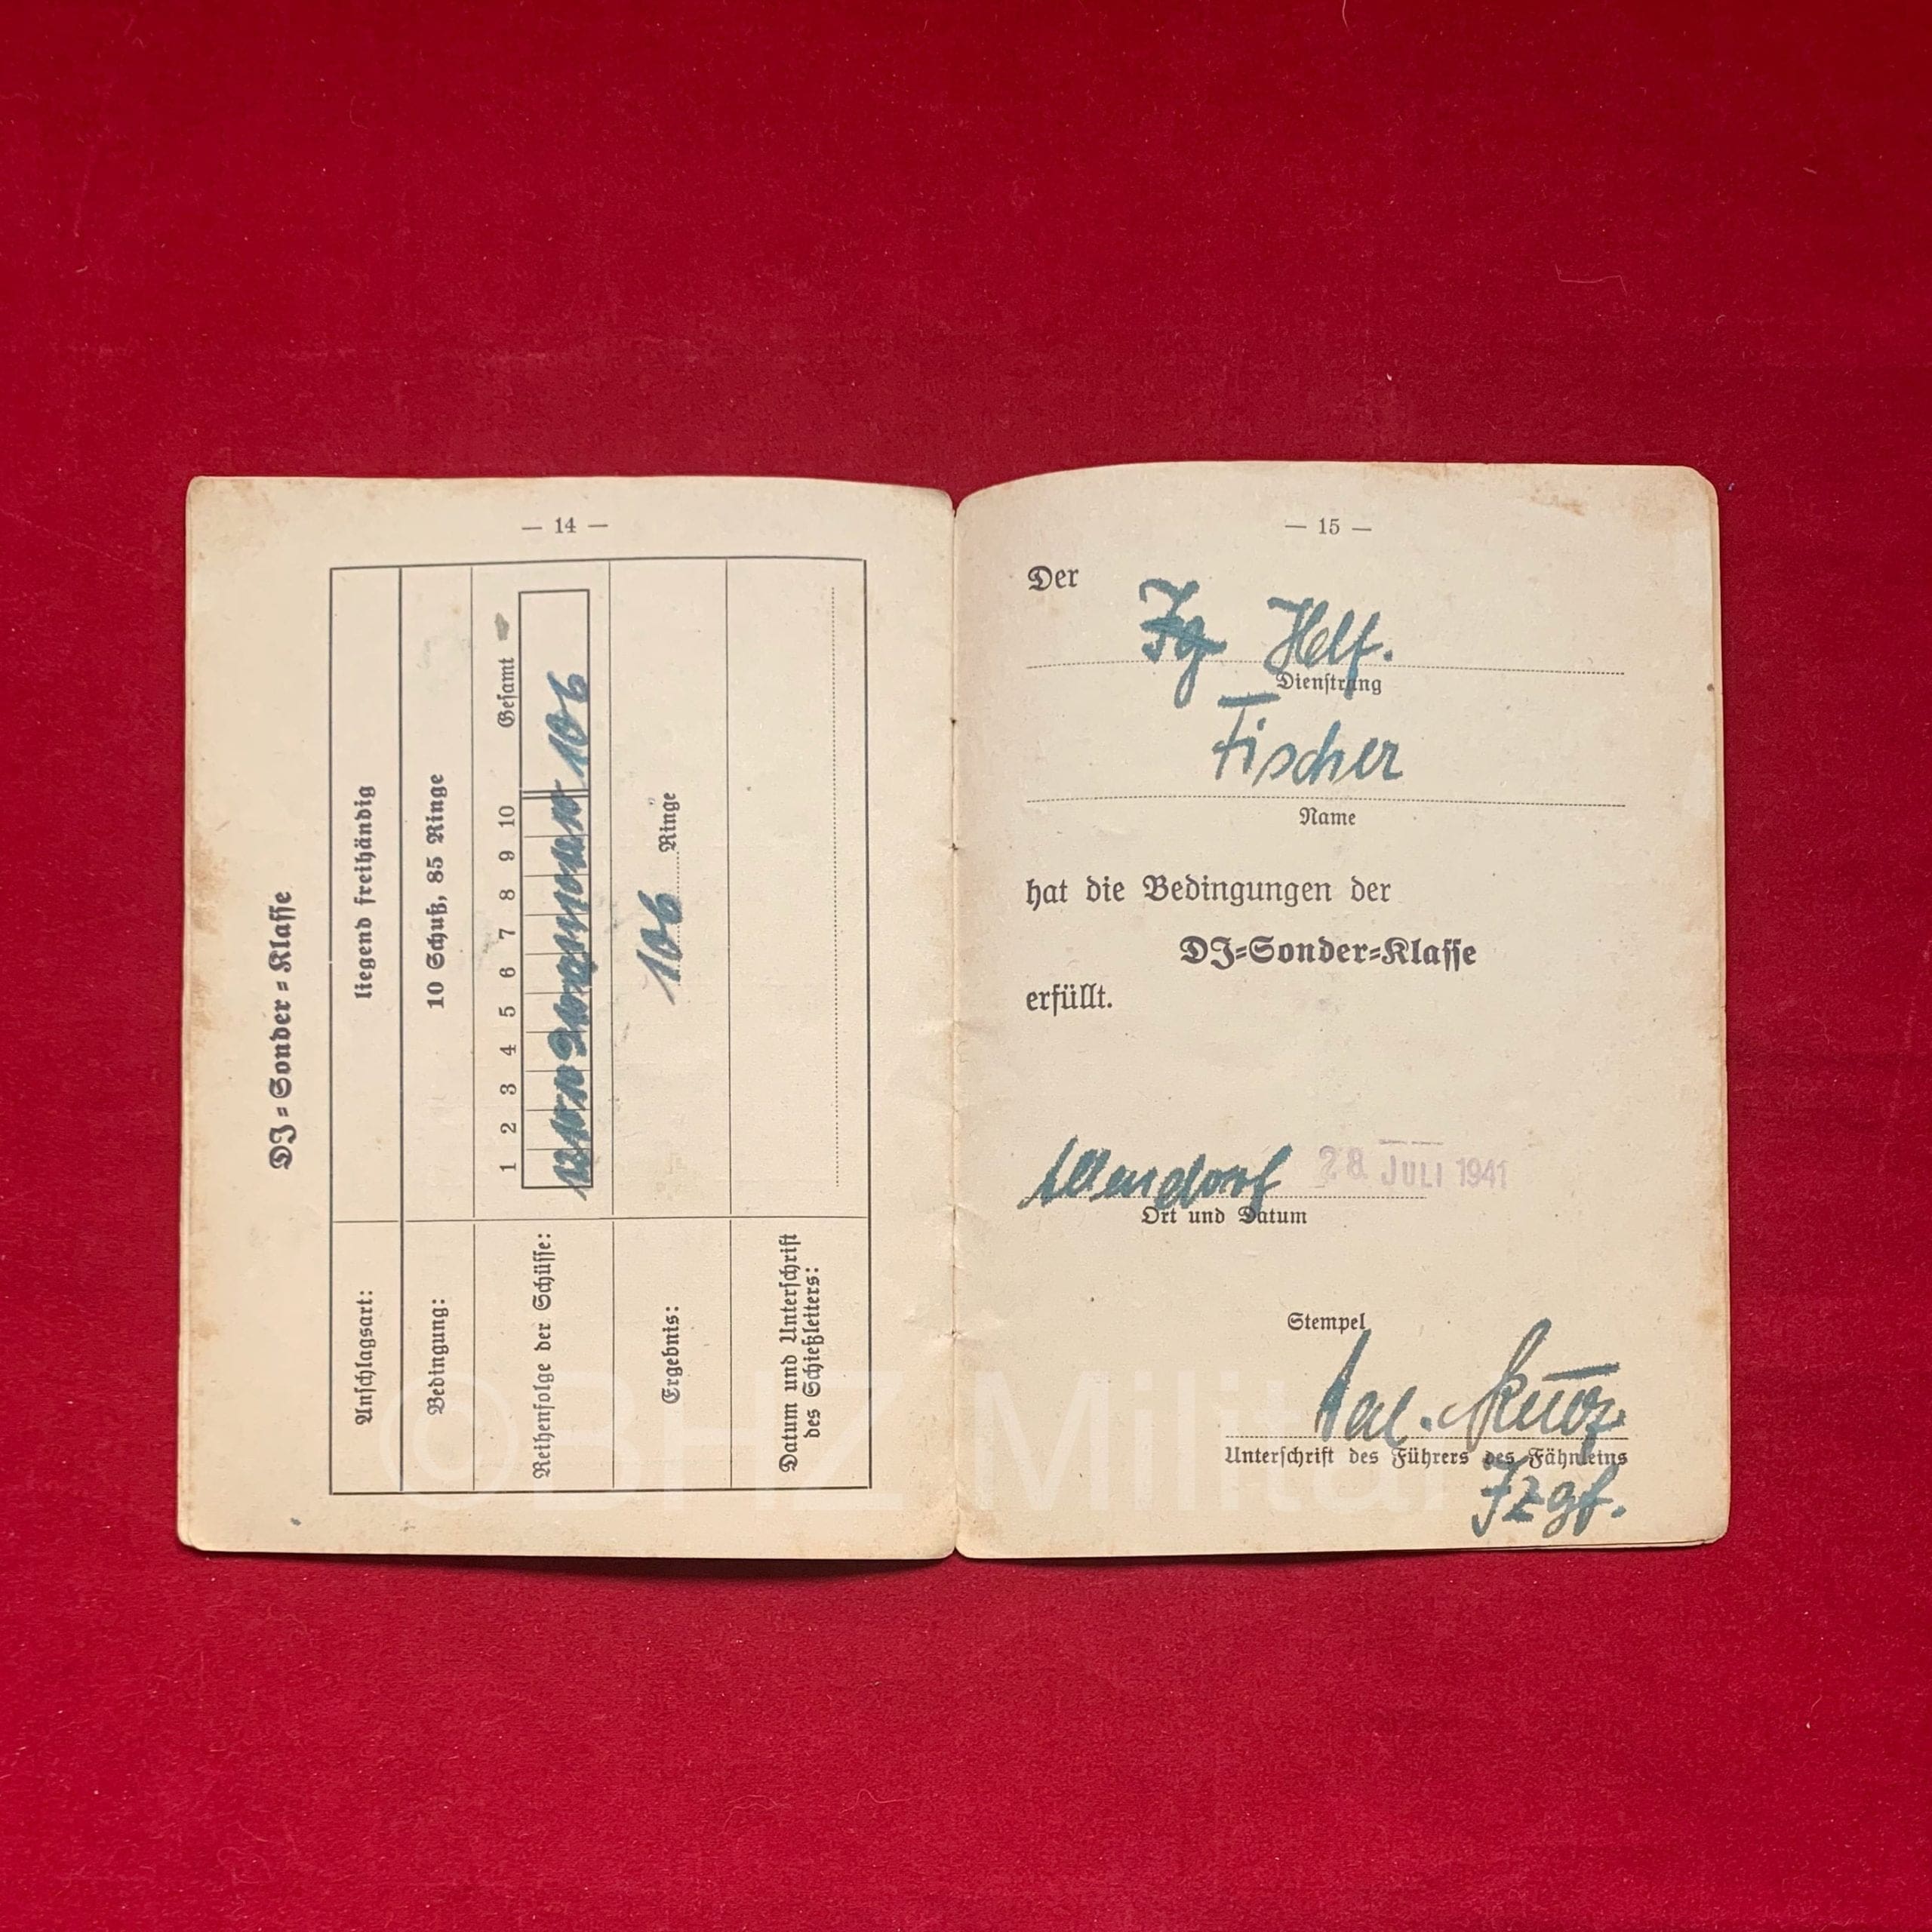 — 14 —
DJ-Sonder-Klasse
Anschlagsart: liegend freihändig
Bedingung: 10 Schuß, 85 Ringe
Reihenfolge der Schüsse: 1 2 3 4 5 6 7 8 9 10 Gesamt
12 10 10 9 106
Ergebnis: 106 Ringe
Datum und Unterschrift
des Schießleiters:
— 15 —
Der
Jg Hlf.
Dienstrang
Fischer
Name
hat die Bedingungen der
DJ=Sonder=Klasse
erfüllt.
28. JULI 1941
Ort und Datum
Stempel
Unterschrift des Führers des Fähnleins
Jzgf.
©BHZ Militar